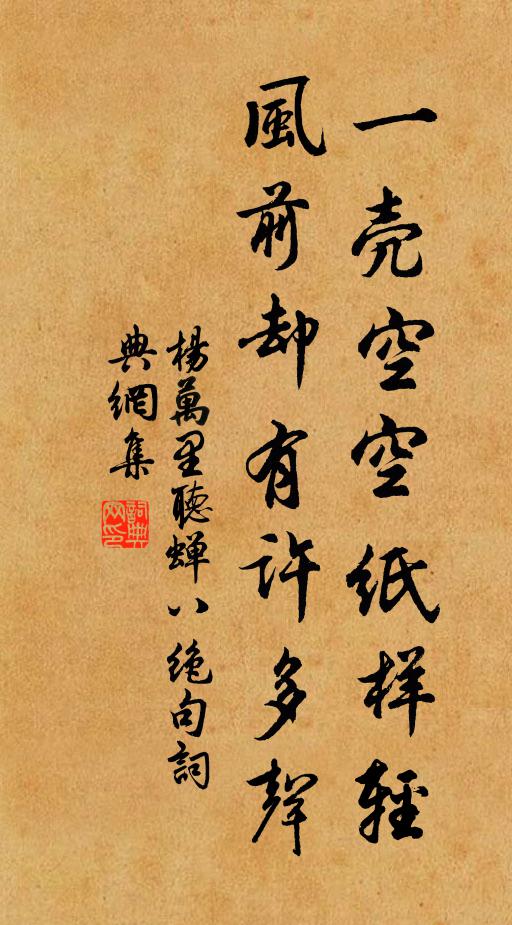 一壳空空纸样轻
風前却有许多聲
楊萬里聽蝉八绝句詞
典網集
詞典网印